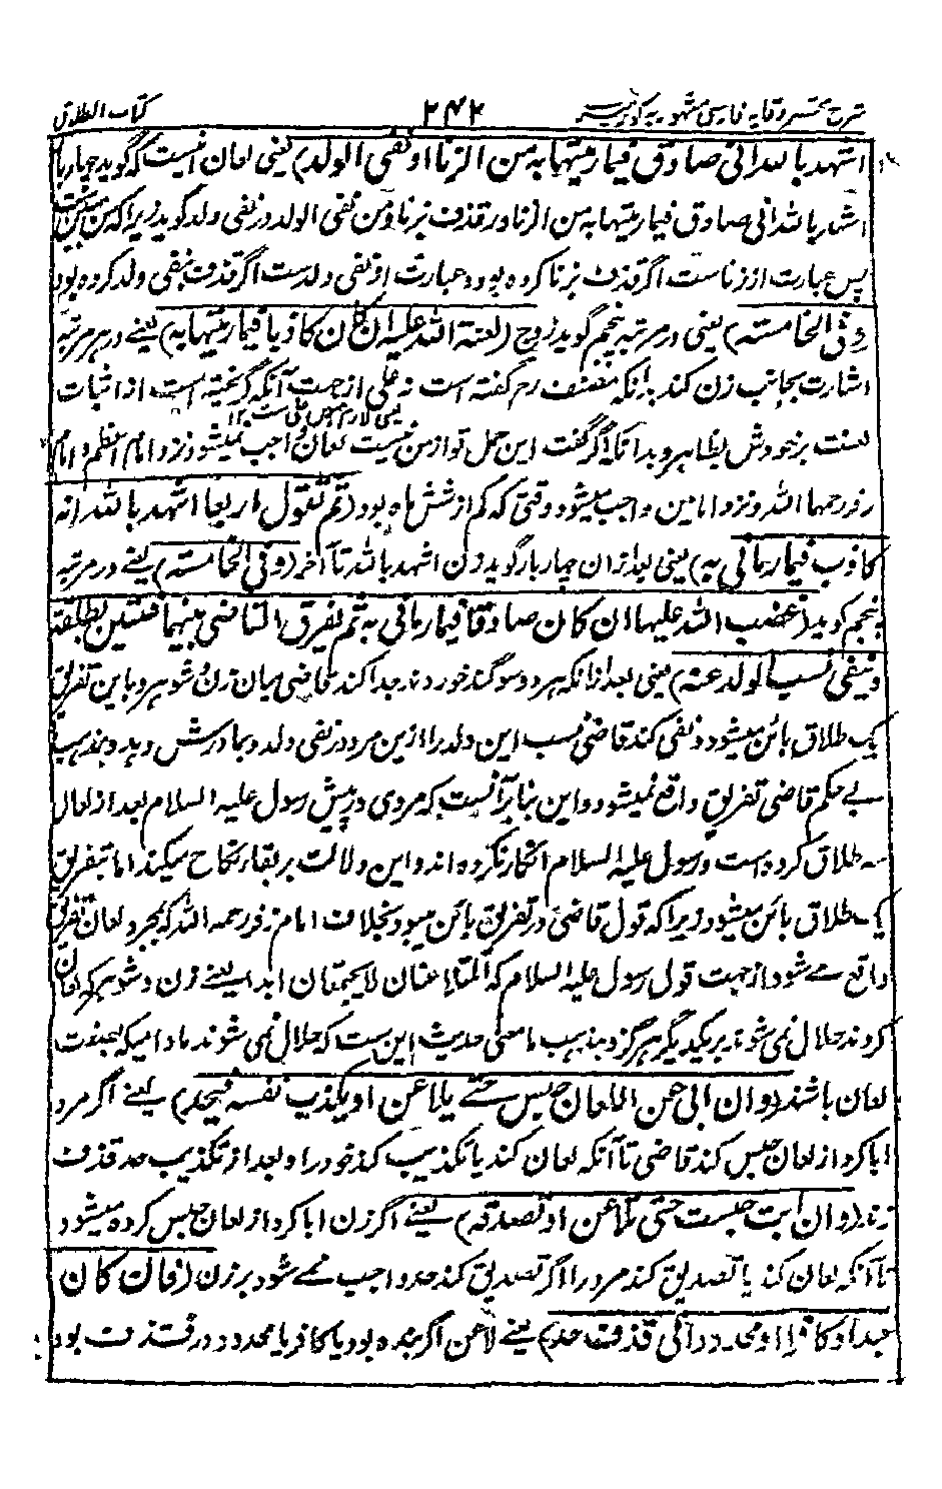 شرح مختصر وقایہ فارسی مشہور بہ کور میر
۲۴۲
کتاب الطلاق
اشهد بالله انی صادق فیما رمیتها به من الزنا او نفی الولد) یعنی لعان انیست که گوید چهار بار
اشهد بالله انی صادق فیما رمیتها به من الزنا در قذف بزنا و من نفی الولد در نفی ولد گوید زیرا که من
پس عبارت از زناست اگر قذف بزنا کرده بود و عبارت از نفی ولدست اگر قذف بنفی ولد کرده بود
(وفی الخامسة) یعنی در مرتبه پنجم گوید زوج (لعنة الله علیه ان کان کاذبا فیما رمیتها به) یعنے در هر مرتبه
اشارت بجانب زن کند بدانکه مصنف رح گفته است نه علی از جهت آنکه گریخته است از اثبات
لعنت بر خودش بظاهر و بدانکه اگر گفت این حمل تو از من نیست لعان واجب نمیشود نزد امام اعظم و امام
زفر رحمهما الله و نزد امامین واجب میشود وقتی که کم از شش ماه بود (ثم تقول اربعا اشهد بالله انه
کاذب فیما رمانی به) یعنی بعد ازان چهار بار گوید زن اشهد بالله تا آخر (وفی الخامسة) یعنے در مرتبه
پنجم گوید (غضب الله علیها ان کان صادقا فیما رمانی به ثم یفرق القاضی بینهما فتبین بطلقة
وینفی نسب الولد عنه) یعنی بعد ازانکه هر دو سوگند خوردند جدا کند قاضی میان زن و شوهر و باین تفریق
یک طلاق بائن میشود و نفی کند قاضی نسب این ولد را ازین مرد در نفی ولد و بمادرش دهد و بمذهب ما
بے حکم قاضی تفریق واقع نمیشود و این بنابر آنست که مردی در پیش رسول علیه السلام بعد از لعان
سه طلاق کرده است و رسول علیه السلام انکار نکرده اند و این دلالت بر بقاء نکاح میکند اما بتفریق
یک طلاق بائن میشود زیرا که قول قاضی در تفریق بائن میبود بخلاف امام زفر رحمه الله که بمجرد لعان تفریق
واقع مے شود از جهت قول رسول علیه السلام که المتلاعنان لا یجتمعان ابدا یعنے زن و شوهر که لعان
کردند حلال نمی شوند بر یکدیگر هرگز و بمذهب ما معنی حدیث این ست که حلال نمی شوند مادامیکه بصفت
لعان باشند (وان ابی عن اللعان حبس حتے یلاعن او یکذب نفسه فیحد) یعنے اگر مرد
ابا کرد از لعان حبس کند قاضی تا آنکه لعان کند یا تکذیب کند خود را و بعد از تکذیب حد قذف
زند (وان ابت حبست حتی تلاعن او تصدقه) یعنے اگر زن ابا کرد از لعان حبس کرده میشود
تا آنکه لعان کند یا تصدیق کند مرد را اگر تصدیق کند حد واجب نمے شود بر زن (فان کان
عبدا او کافرا او محدودا فی قذف حد) یعنے لاعن اگر بنده بود یا کافر یا محدود در قذف بود